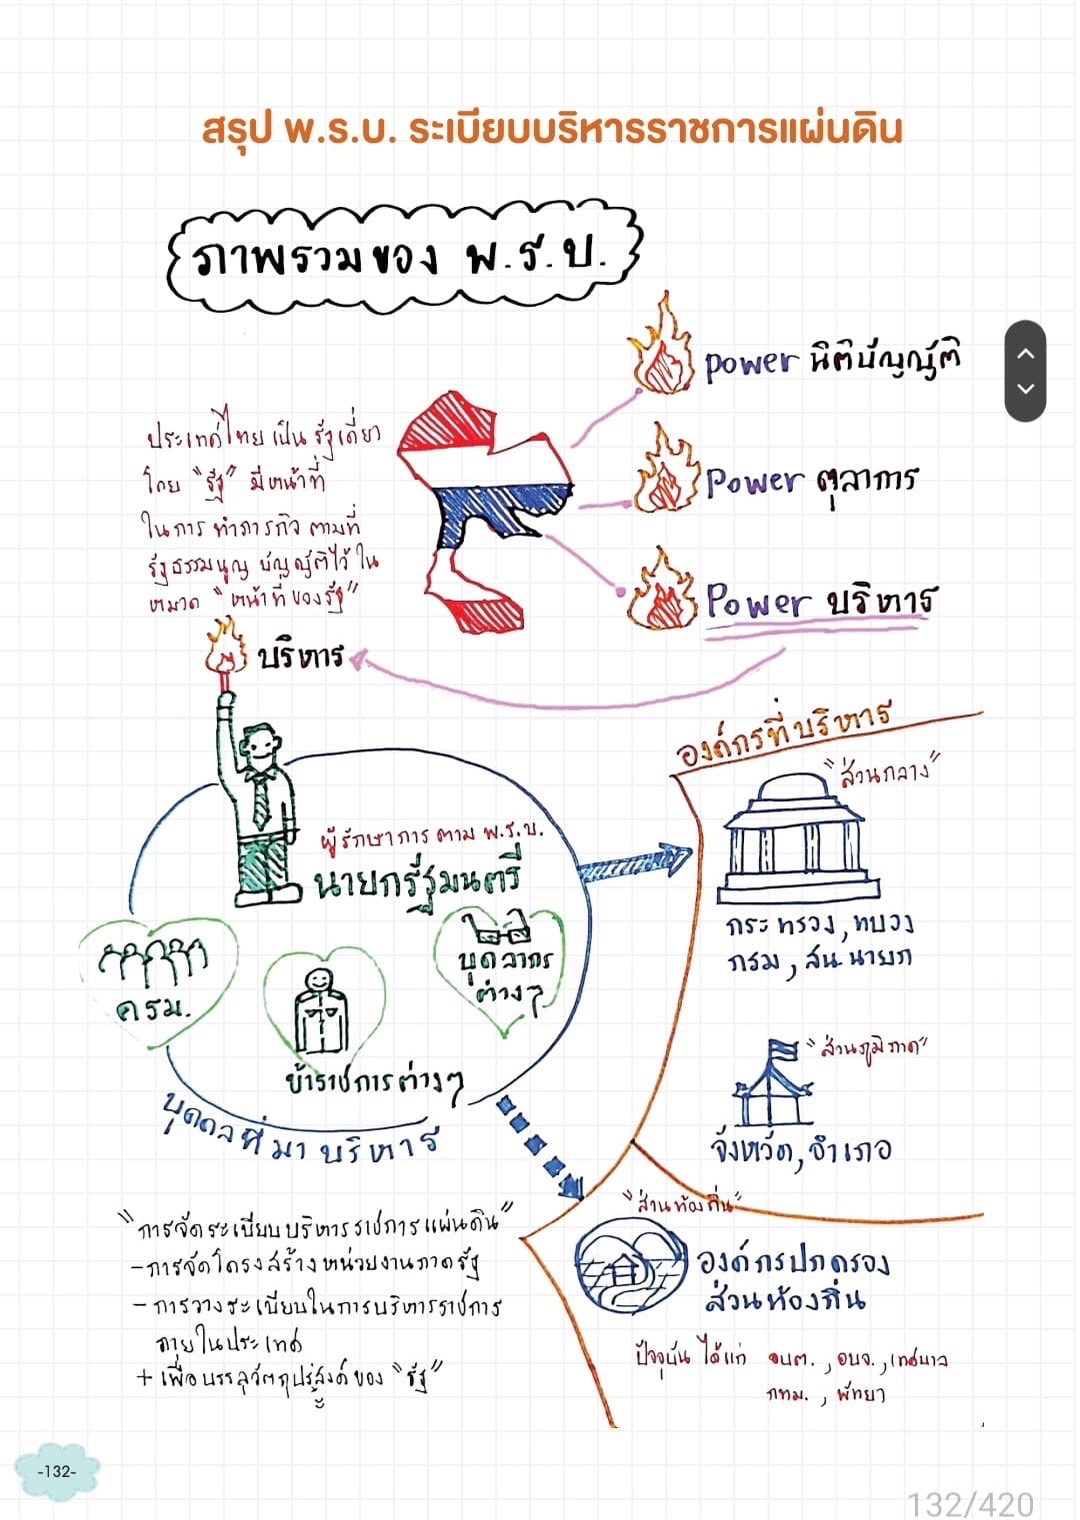 สรุป พ.ร.บ. ระเบียบบริหารราชการแผ่นดิน
ภาพรวมของ พ.ร.บ.
power นิติบัญญัติ
Power ตุลาการ
Power บริหาร
ประเทศไทย เป็น รัฐเดี่ยว
โดย "รัฐ" มีหน้าที่
ในการ ทำภารกิจ ตามที่
รัฐธรรมนูญ บัญญัติไว้ ใน
หมวด "หน้าที่ ของรัฐ"
บริหาร
ผู้รักษาการ ตาม พ.ร.บ.
นายกรัฐมนตรี
ครม.
ข้าราชการต่างๆ
บุคลากร
ต่างๆ
บุคคลที่มา บริหาร
องค์กรที่บริหาร
"ส่วนกลาง"
กระทรวง, ทบวง
กรม, สน.นายก
"ส่วนภูมิภาค"
จังหวัด, อำเภอ
"ส่วนท้องถิ่น"
องค์กรปกครอง
ส่วนท้องถิ่น
ปัจจุบัน ได้แก่ อบต., อบจ., เทศบาล
กทม., พัทยา
"การจัดระเบียบบริหารราชการแผ่นดิน"
- การจัดโครงสร้างหน่วยงานภาครัฐ
- การวางระเบียบในการบริหารราชการ
ภายในประเทศ
+ เพื่อบรรลุวัตถุประสงค์ ของ "รัฐ"
-132-
132/420